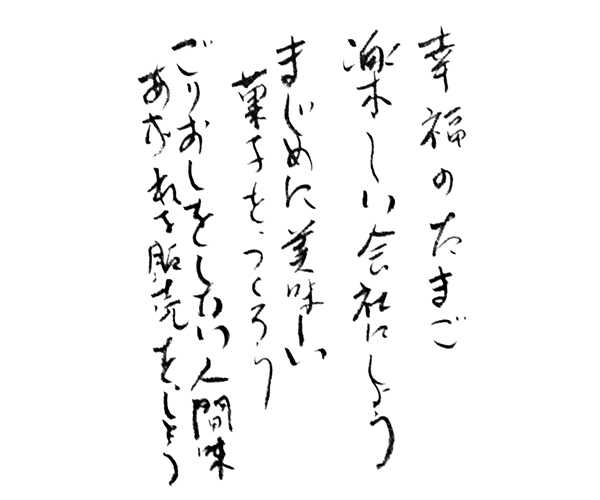 幸福のたまご
楽しい会社にしよう
まじめに美味しい
菓子をつくろう
ごりおしをしない人間味
あふれる販売をしよう